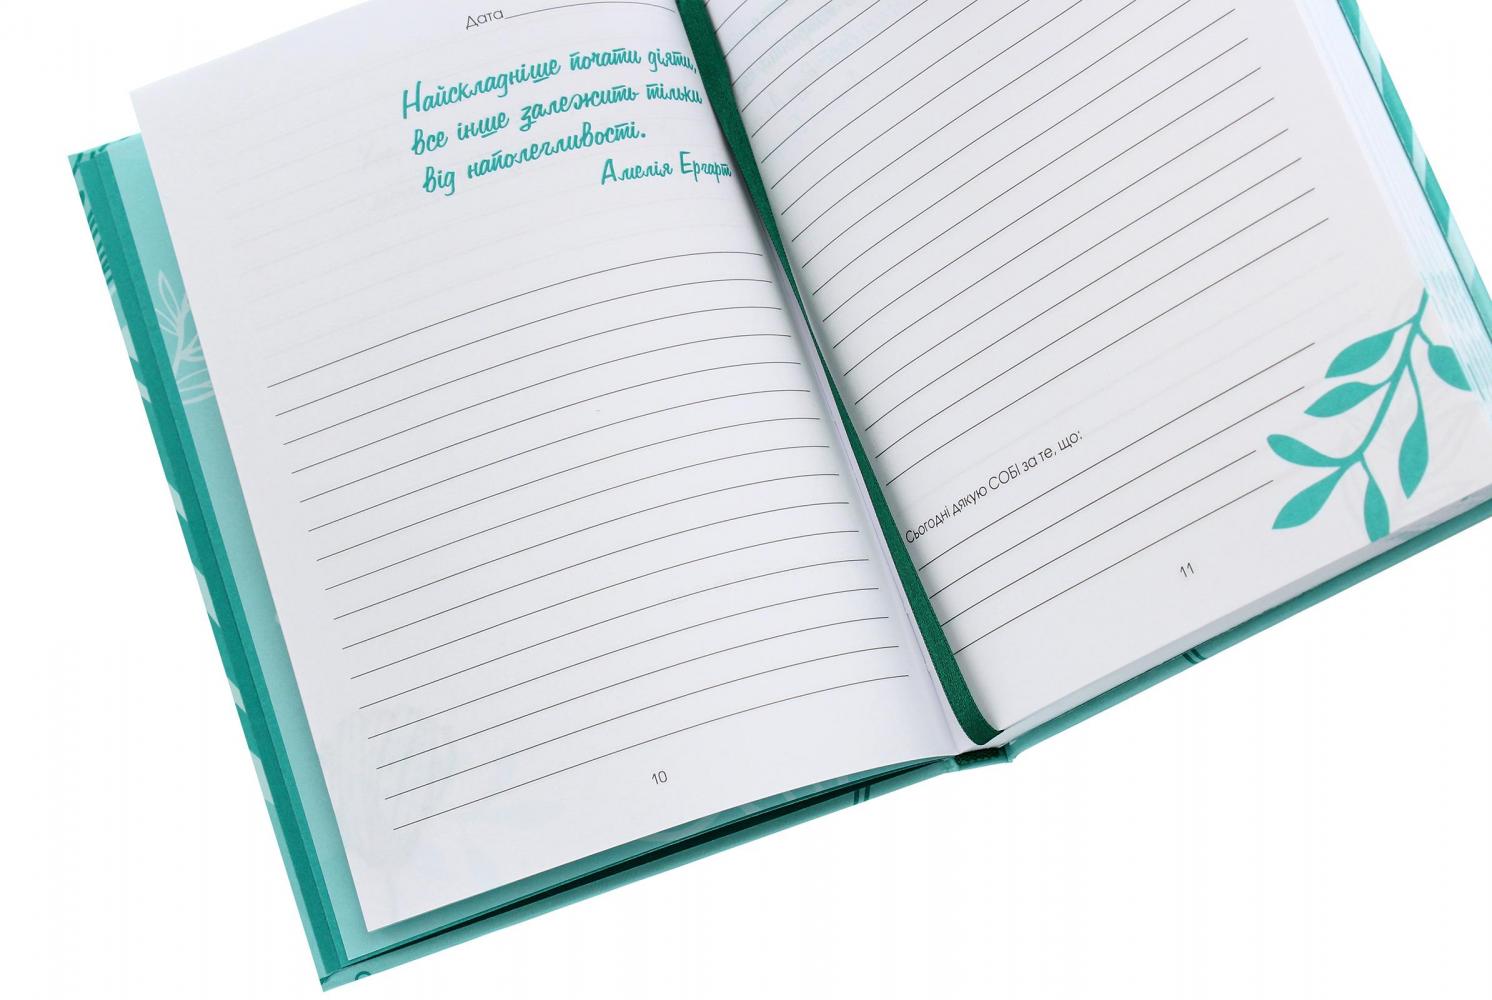 Дата
Найскладніше почати діяти,
все інше залежить тільки
від наполегливості.
Амелія Ергарт
10
Сьогодні дякую СОБІ за те, що:
11